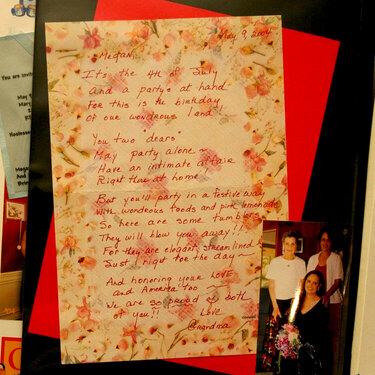 May 9, 2004
Megan,
It's the 4th of July
And a party's at hand
For this is the birthday
of our wondrous land!
"You two dears"
May party alone -
Have an intimate affair
Right there at home
But you'll party in a festive way
With wondrous foods and pink lemonade
So here are some tumblers
They will blow you away!!
For they are elegant, streamlined &
Just right for the day -
And honoring your LOVE
and America too -
We are so proud of both
of you!!
Love
Grandma
You are invit
May
Mary
Hostesses
Mega